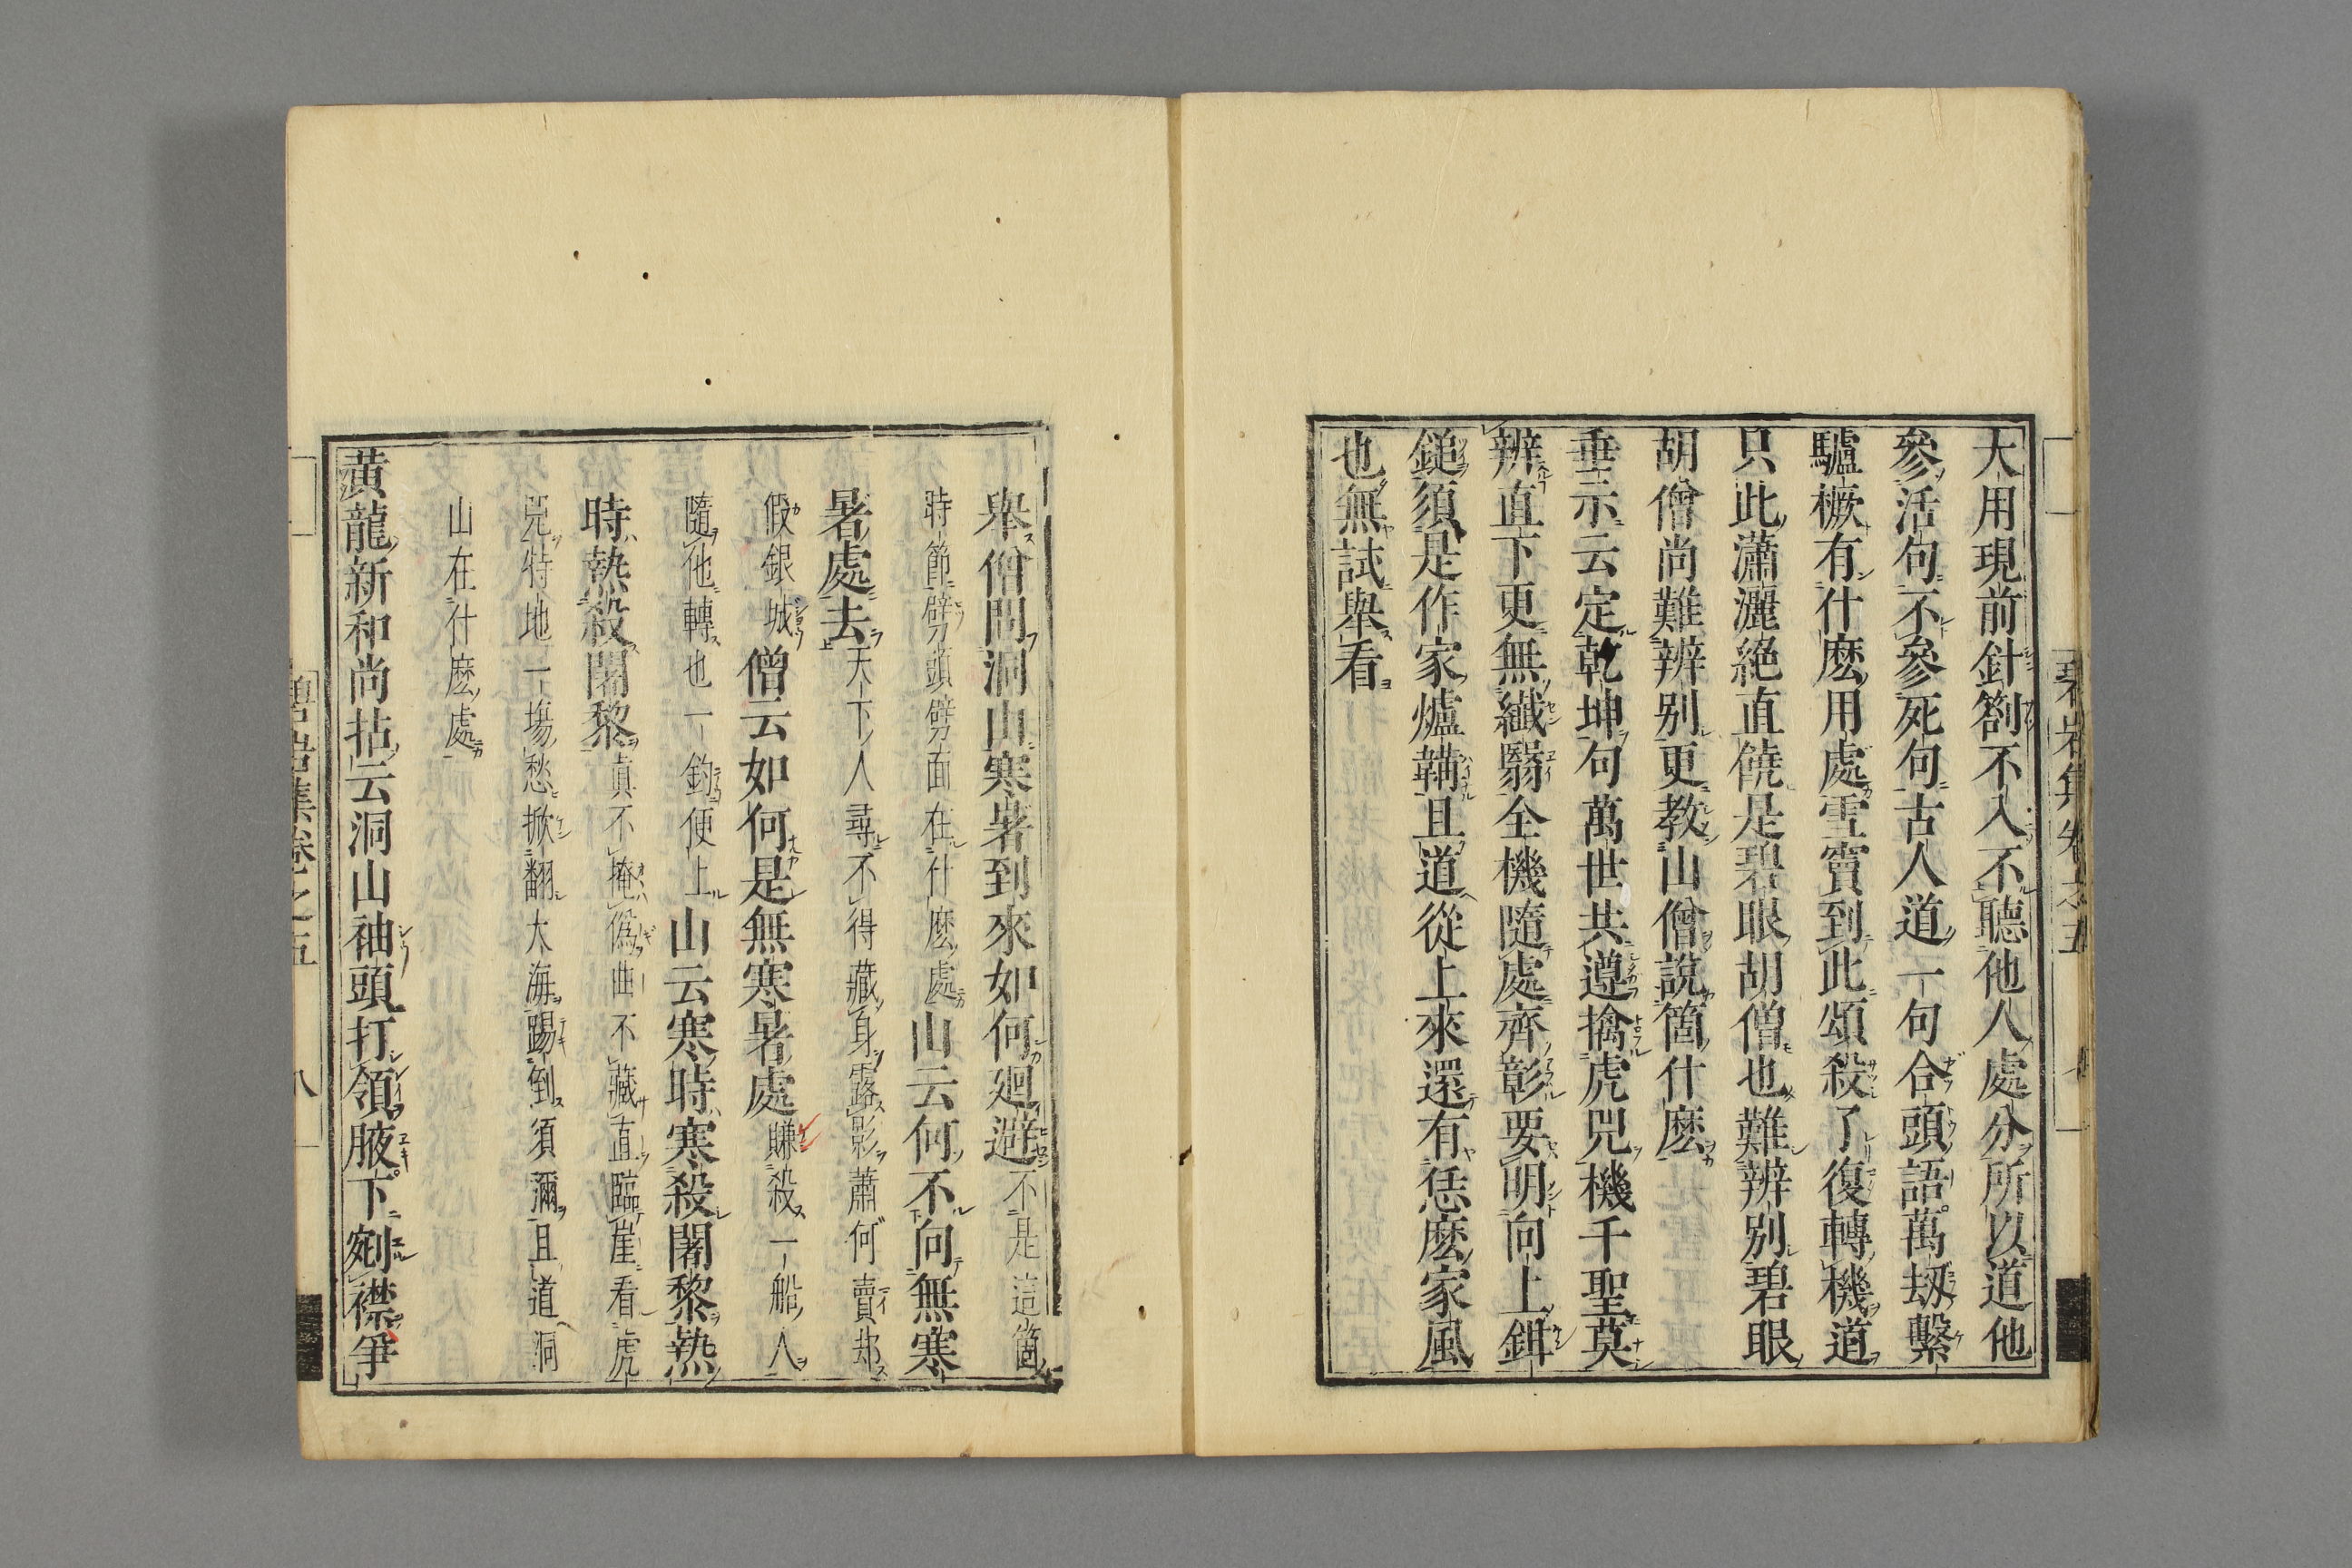 碧岩集卷之五
大用現前針劄不入不聽他人處分所以道他
參活句不參死句古人道一句合頭語萬劫繫
驢橛有什麽用處雪竇到此頌殺了復轉機道
只此瀟灑絕直饒是碧眼胡僧也難辨別碧眼
胡僧尚難辨別更教山僧說箇什麽
垂示云定乾坤句萬世共遵擒虎兕機千聖莫
辨直下更無纖翳全機隨處齊彰要明向上鉗
鎚須是作家爐鞴且道從上來還有恁麽家風
也無試舉看
舉僧問洞山寒暑到來如何廻避不是這箇
時節劈頭劈面在什麽處山云何不向無寒
暑處去天下人尋不得藏身露影蕭何賣却
假銀城僧云如何是無寒暑處賺殺一船人
隨他轉也一釣便上山云寒時寒殺闍黎熱
時熱殺闍黎眞不掩僞曲不藏直臨崖看虎
兕特地一塲愁掀翻大海踢倒須彌且道洞
山在什麽處
黃龍新和尚拈云洞山袖頭打領腋下剜襟爭
碧岩集卷之五 八